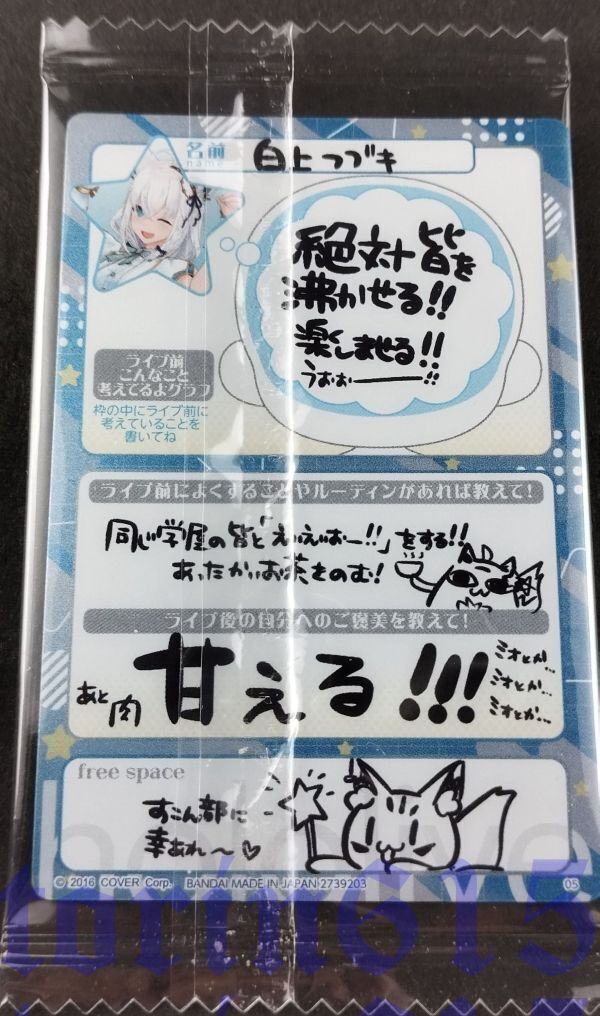 名前
name
白上フブキ
絶対皆を
沸かせる!!
楽しませる!!
うおぉー!!
ライブ前
こんなこと
考えてるよグラフ
枠の中にライブ前に
考えていることを
書いてね
ライブ前によくすることやルーティンがあれば教えて!
同じ学屋の皆と「えいえいおー!!」をする!!
あったかいお茶をのむ!
ライブ後の自分へのご褒美を教えて!
甘える!!!
あと
肉
ミオとか…
ミオとか…
ミオとか…
free space
すこん部に
幸あれ〜♡
© 2016 COVER Corp. BANDAI MADE IN JAPAN 2739203
05